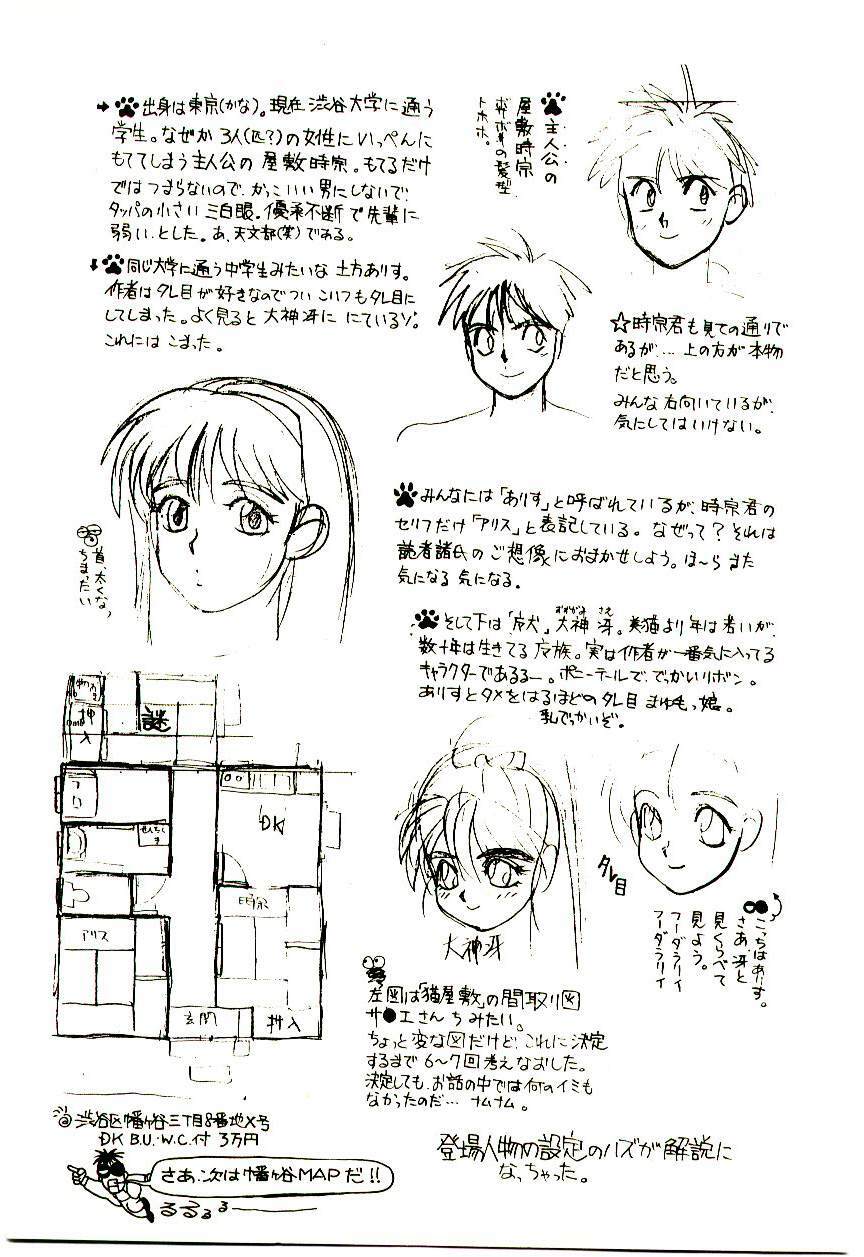 出身は東京(かな)。現在渋谷大学に通う
学生。なぜか3人(匹?)の女性にいっぺんに
もててしまう主人公の屋敷時宗。もてるだけ
ではつまらないので、かっこいい男にしないで、
タッパの小さい三白眼。優柔不断で先輩に
弱い、とした。あ、天文部(笑)である。
同じ大学に通う中学生みたいな土方ありす。
作者はタレ目が好きなのでついこいつもタレ目に
してしまった。よく見ると大神冴ににているゾ。
これにはこまった。
主人公の
屋敷時宗
ボサボサの髪型
トホホ。
☆時宗君も見ての通りで
あるが、…上の方が本物
だと思う。
みんな右向いているが、
気にしてはいけない。
首、太くな、
ちまったい
みんなには「ありす」と呼ばれているが、時宗君の
セリフだけ「アリス」と表記している。なぜって?それは
読者諸氏のご想像におまかせしよう。ほ〜らまた
気になる気になる。
そして下は「成犬」大神冴。美猫より年は若いが、
おおがみ さえ
数十年は生きてる
族。実は作者が一番気に入ってる
キャラクターであるるー。ポニーテールで、でっかいリボン。
ありすとタメをはるほどのタレ目まゆもっ娘。
乳でっかいぞ。
謎
物入
押入
フロ
せんたくき
DK
時宗
アリス
玄関
押入
大神冴
タレ目
こっちはありす。
さあ冴と
見くらべて
見よう。
フーダラリィ
フーダラリィ
左図は「猫屋敷」の間取り図
サ●エさんちみたい。
ちょっと変な図だけど、これに決定
するまで6〜7回考えなおした。
決定しても、お話の中では何のイミも
なかったのだ…ナムナム。
渋谷区幡ヶ谷三丁目8番地X号
DK B.U.W.C.付 3万円
さあ、次は幡ヶ谷MAPだ!!
るるるる
登場人物の設定のハズが解説に
なっちゃった。